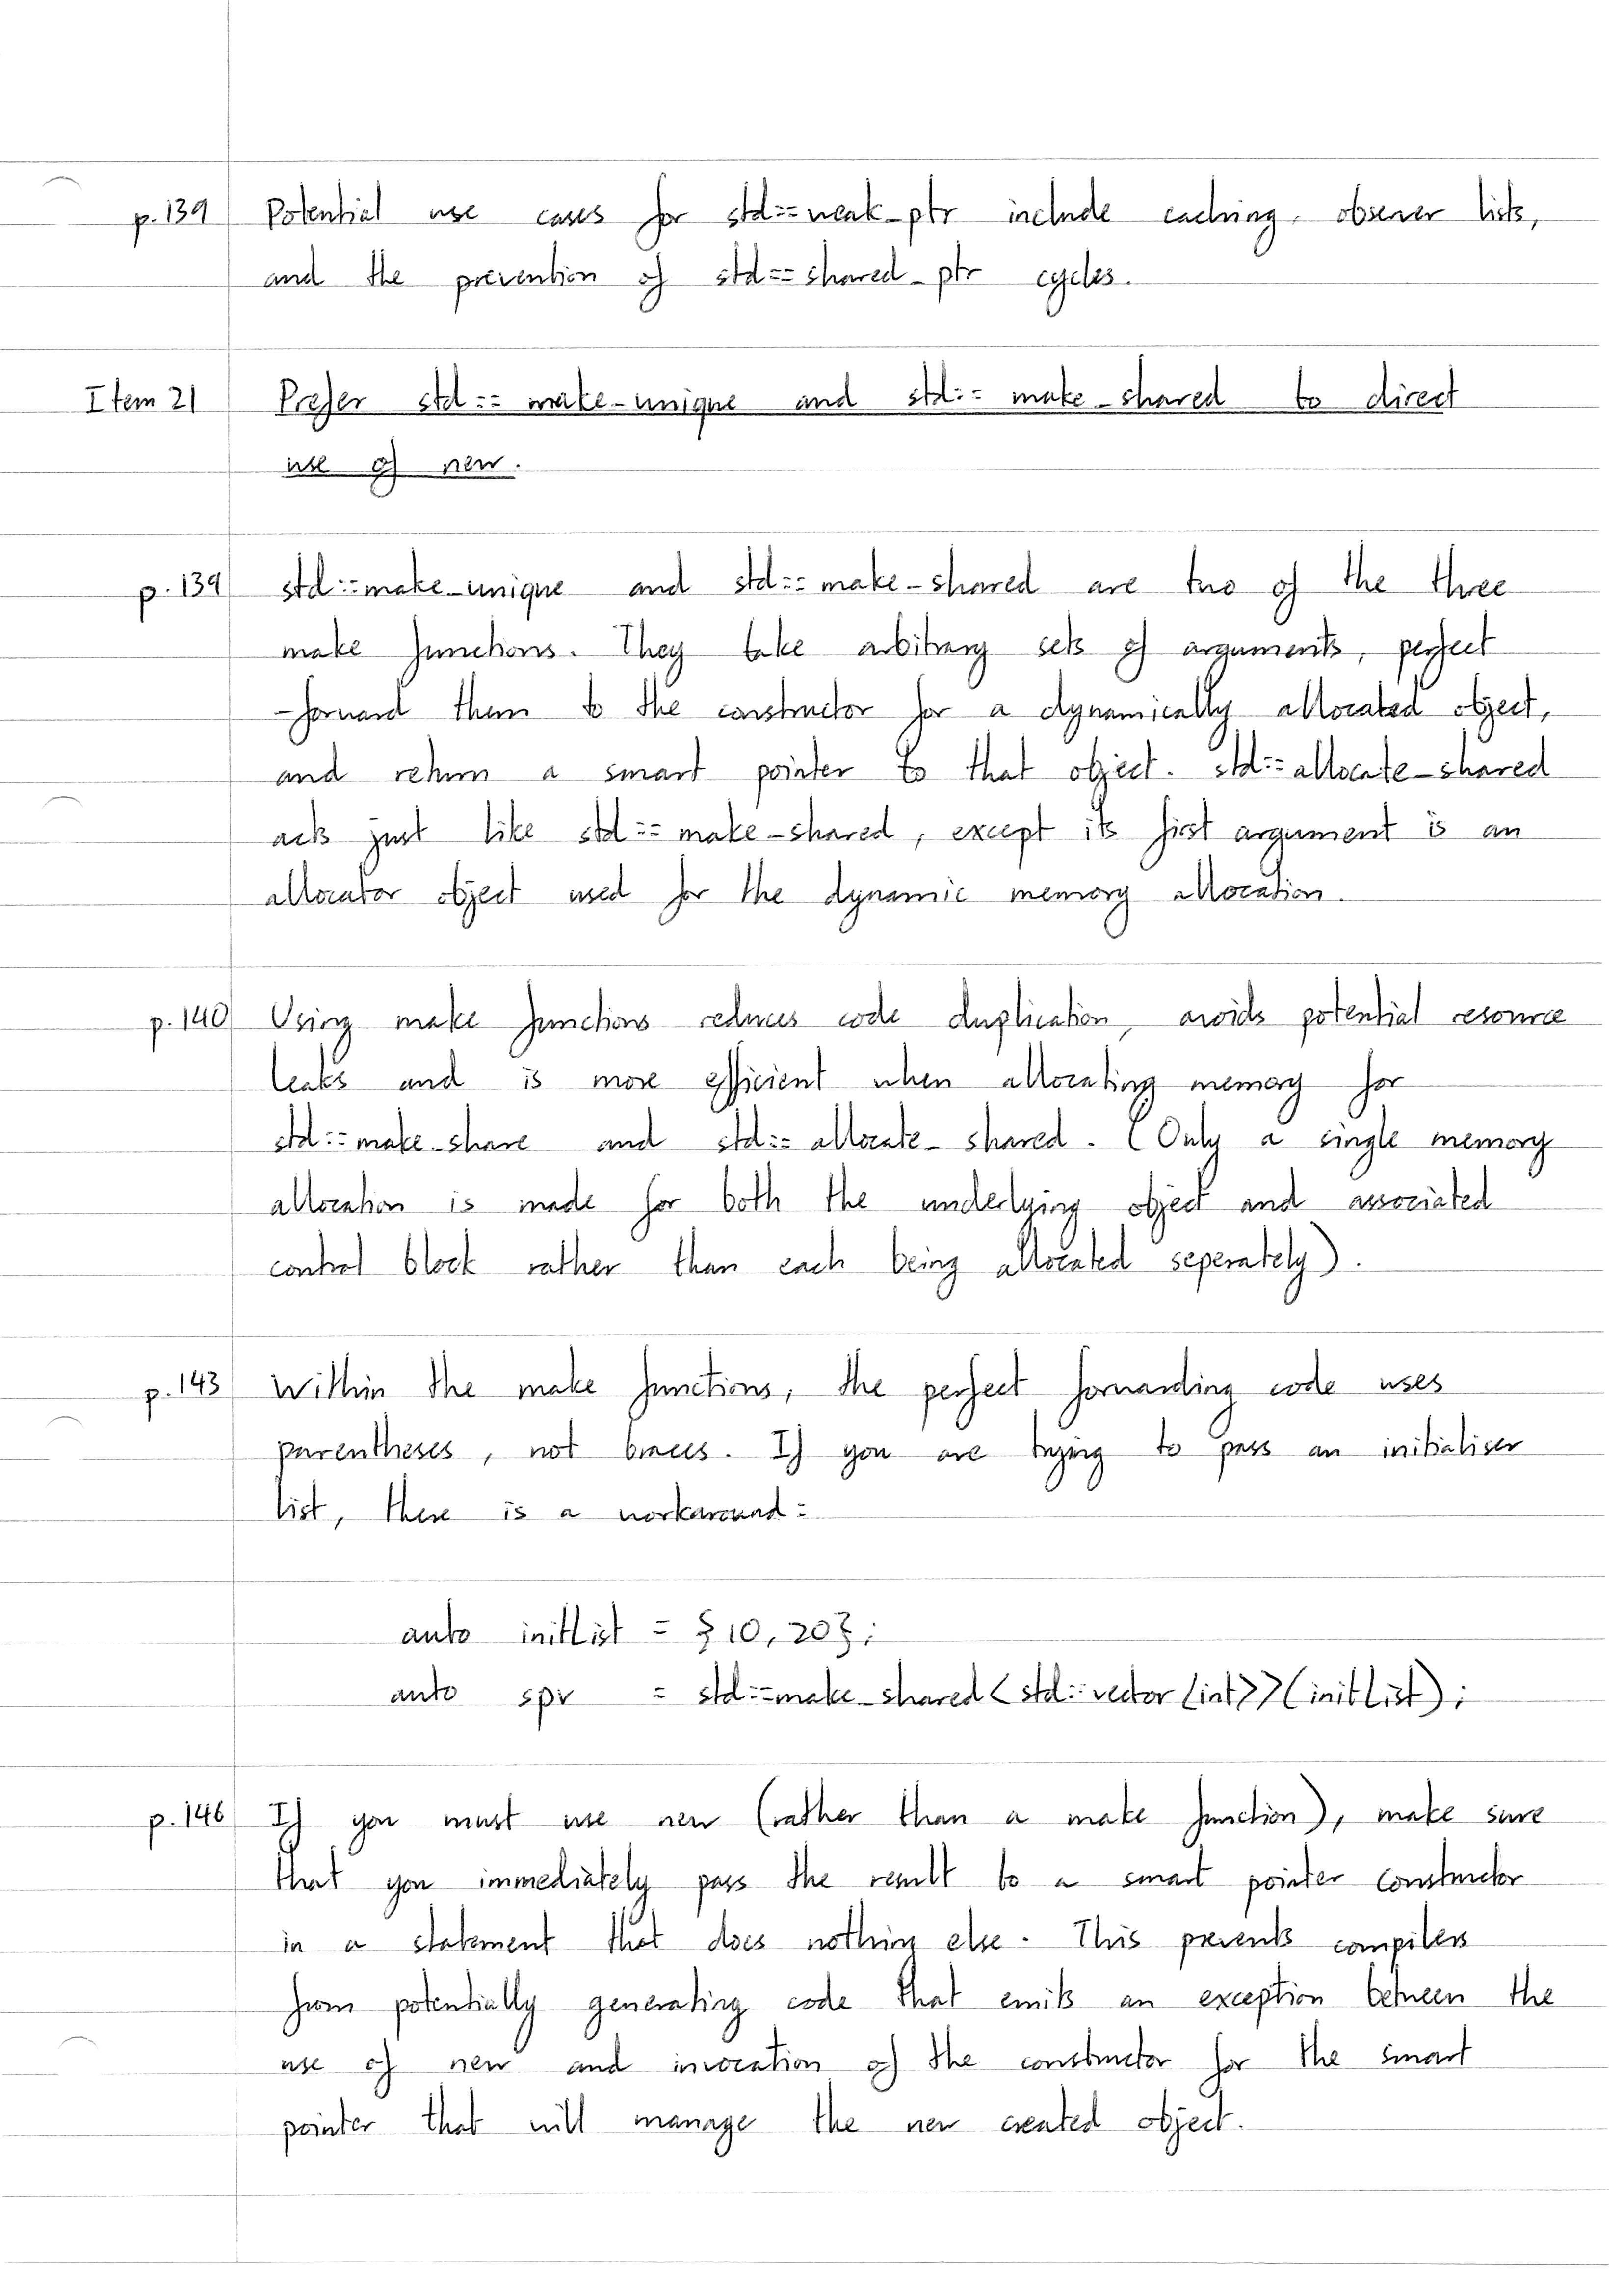 p.139 Potential use cases for std::weak_ptr include caching, observer lists,
and the prevention of std::shared_ptr cycles.
Item 21 Prefer std::make_unique and std::make_shared to direct
use of new.
p.139 std::make_unique and std::make_shared are two of the three
make functions. They take arbitrary sets of arguments, perfect
-forward them to the constructor for a dynamically allocated object,
and return a smart pointer to that object. std::allocate_shared
acts just like std::make_shared, except its first argument is an
allocator object used for the dynamic memory allocation.
p.140 Using make functions reduces code duplication, avoids potential resource
leaks and is more efficient when allocating memory for
std::make_share and std::allocate_shared. (Only a single memory
allocation is made for both the underlying object and associated
control block rather than each being allocated seperately).
p.143 Within the make functions, the perfect forwarding code uses
parentheses, not braces. If you are trying to pass an initialiser
list, there is a workaround:
auto initList = {10, 20};
auto spv = std::make_shared<std::vector<int>>(initList);
p.146 If you must use new (rather than a make function), make sure
that you immediately pass the result to a smart pointer constructor
in a statement that does nothing else. This prevents compilers
from potentially generating code that emits an exception between the
use of new and invocation of the constructor for the smart
pointer that will manage the new created object.